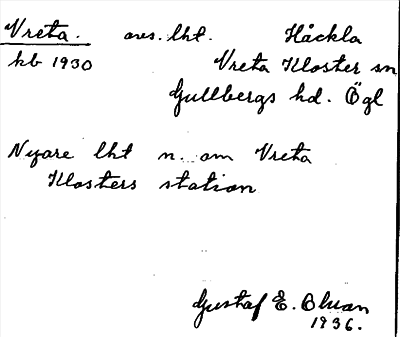 Vreta. avs. lht. Håckla
kb 1930 Vreta Kloster sn
Gullbergs hd. Ögl
Nyare lht n. om Vreta
Klosters station
Gustaf E. Bluan
1936.